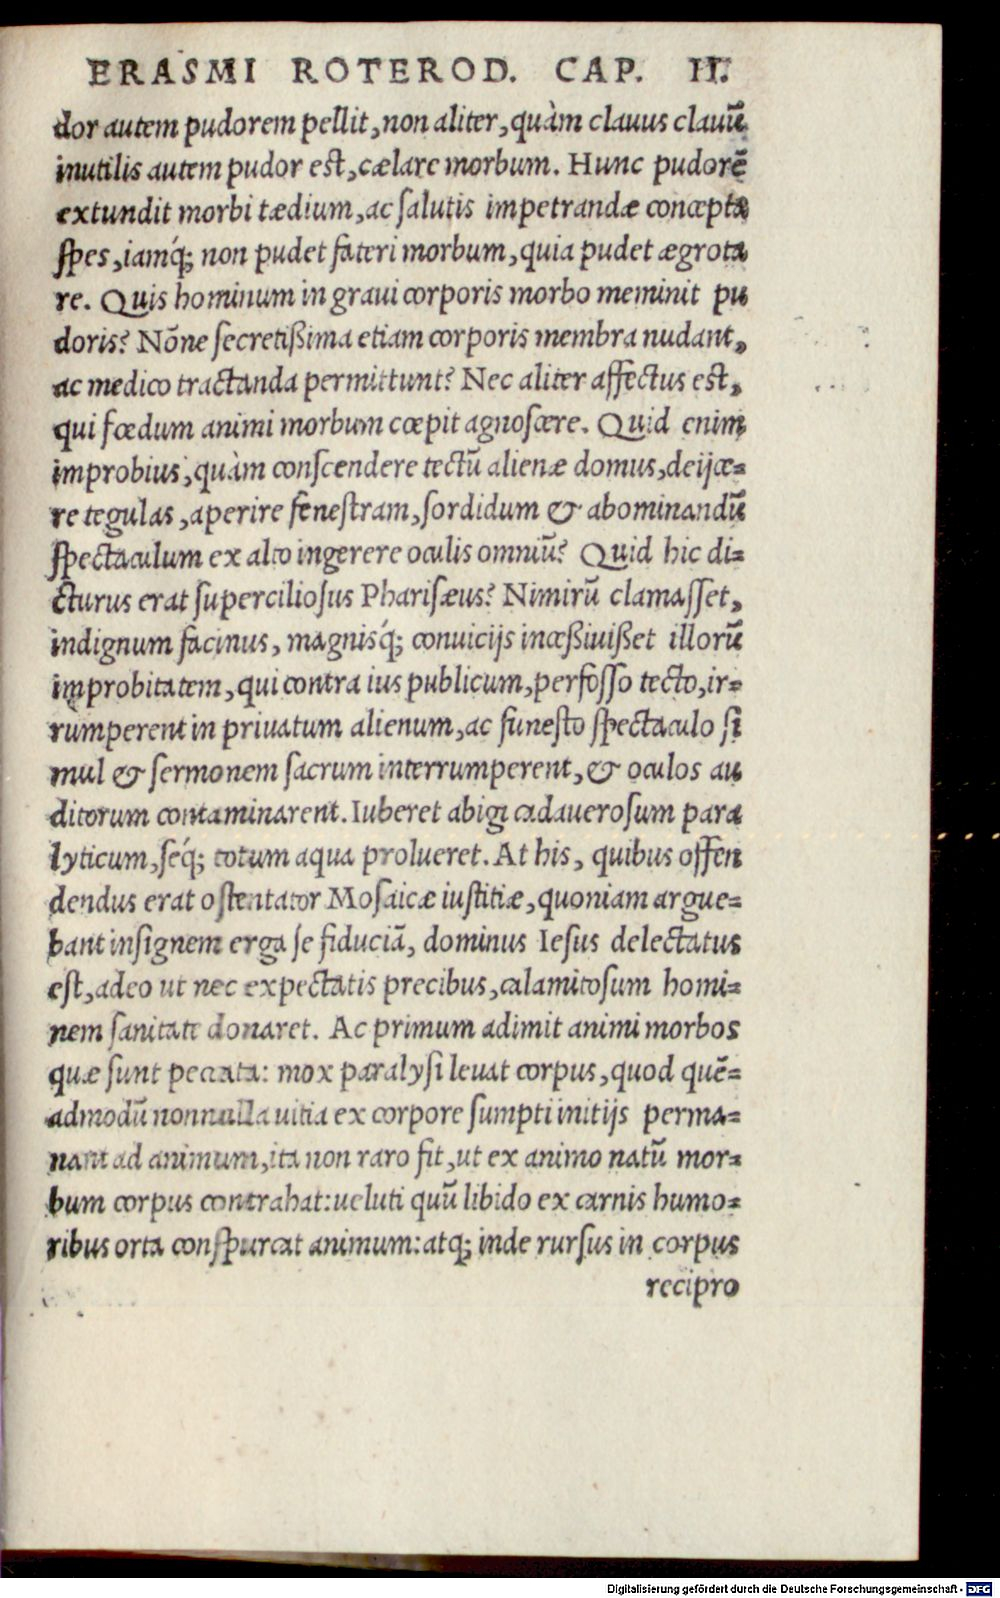 ERASMI ROTEROD. CAP. II.
dor autem pudorem pellit, non aliter, quàm clauus clauũ
inutilis autem pudor est, cælare morbum. Hunc pudorẽ
extundit morbi tædium, ac salutis impetrandæ concepta
spes, iamq́; non pudet fateri morbum, quia pudet ægrota
re. Quis hominum in graui corporis morbo meminit pu
doris? Nõne secretißima etiam corporis membra nudant,
ac medico tractanda permittunt? Nec aliter affectus est,
qui fœdum animi morbum cœpit agnoscere. Quid enim
improbius, quàm conscendere tectũ alienæ domus, deijce-
re tegulas, aperire fenestram, sordidum & abominandũ
spectaculum ex alto ingerere oculis omniũ? Quid hic di-
cturus erat superciliosus Pharisæus? Nimirũ clamasset,
indignum facinus, magnisq́; conuicijs incæßiuißet illorũ
improbitatem, qui contra ius publicum, perfosso tecto, ir-
rumperent in priuatum alienum, ac funesto spectaculo si
mul & sermonem sacrum interrumperent, & oculos au
ditorum contaminarent. Iuberet abigi cadauerosum para
lyticum, seq́; totum aqua prolueret. At his, quibus offen
dendus erat ostentator Mosaicæ iustitiæ, quoniam argue-
bant insignem erga se fiduciã, dominus Iesus delectatus
est, adeo ut nec expectatis precibus, calamitosum homi-
nem sanitate donaret. Ac primum adimit animi morbos
quæ sunt peccata: mox paralysi leuat corpus, quod quẽ-
admodũ nonnulla uitia ex corpore sumpti initijs perma-
nant ad animum, ita non raro fit, ut ex animo natũ mor-
bum corpus contrahat: ueluti quũ libido ex carnis humo-
ribus orta conspurcat animum: atq; inde rursus in corpus
recipro
Digitalisierung gefördert durch die Deutsche Forschungsgemeinschaft - DFG